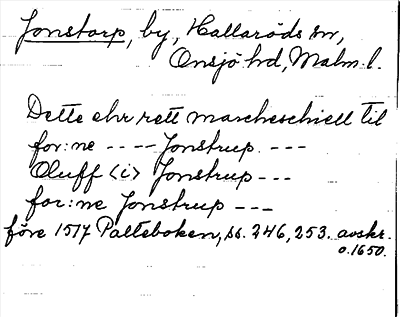 Jonstorp, by, Hallaröds sn,
Onsjö hd, Malm. l.
Dette ehr rett marcheschiell til
for:ne - - - - Jonstrup. - - -
Oluff <i> Jonstrup - - -
for:ne Jonstrup - - -
före 1517 Palteboken, ss. 246, 253. avskr.
o. 1650.